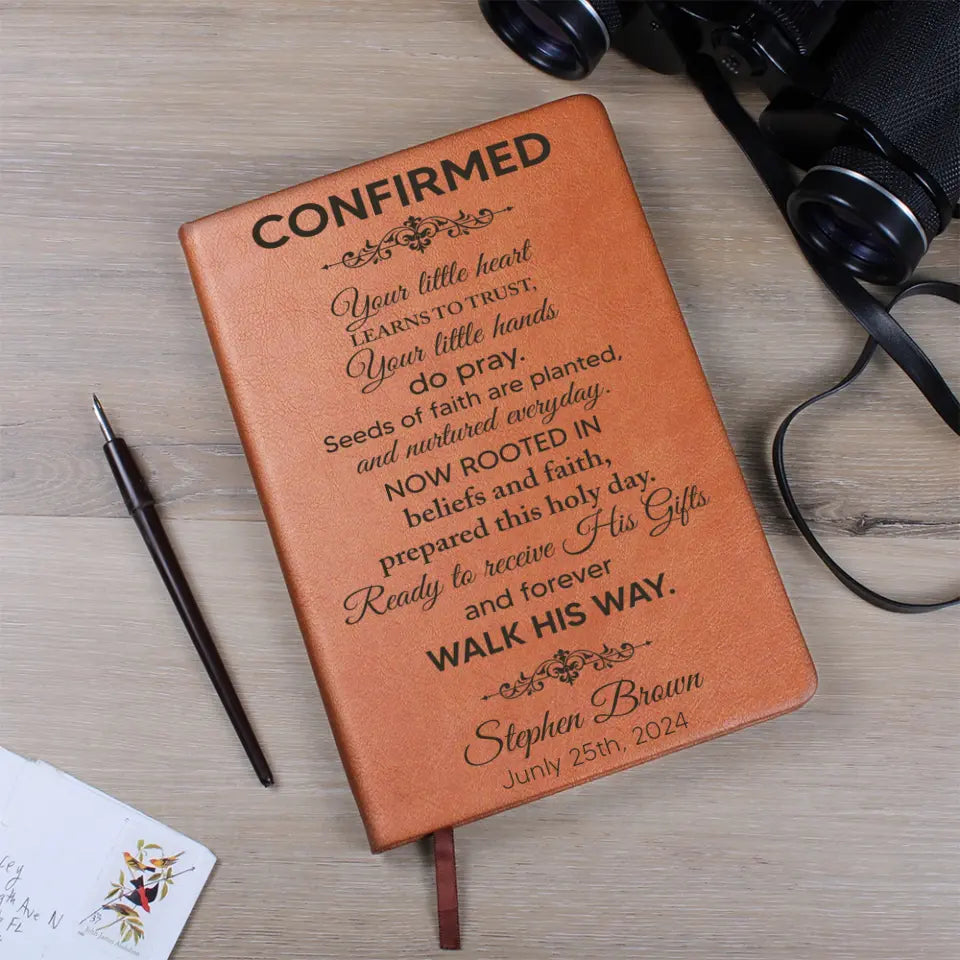 CONFIRMED
Your little heart
LEARNS TO TRUST,
Your little hands
do pray.
Seeds of faith are planted,
and nurtured everyday.
NOW ROOTED IN
beliefs and faith,
prepared this holy day.
Ready to receive His Gifts
and forever
WALK HIS WAY.
Stephen Brown
Junly 25th, 2024
Ave N
FL
37
John James Audubon